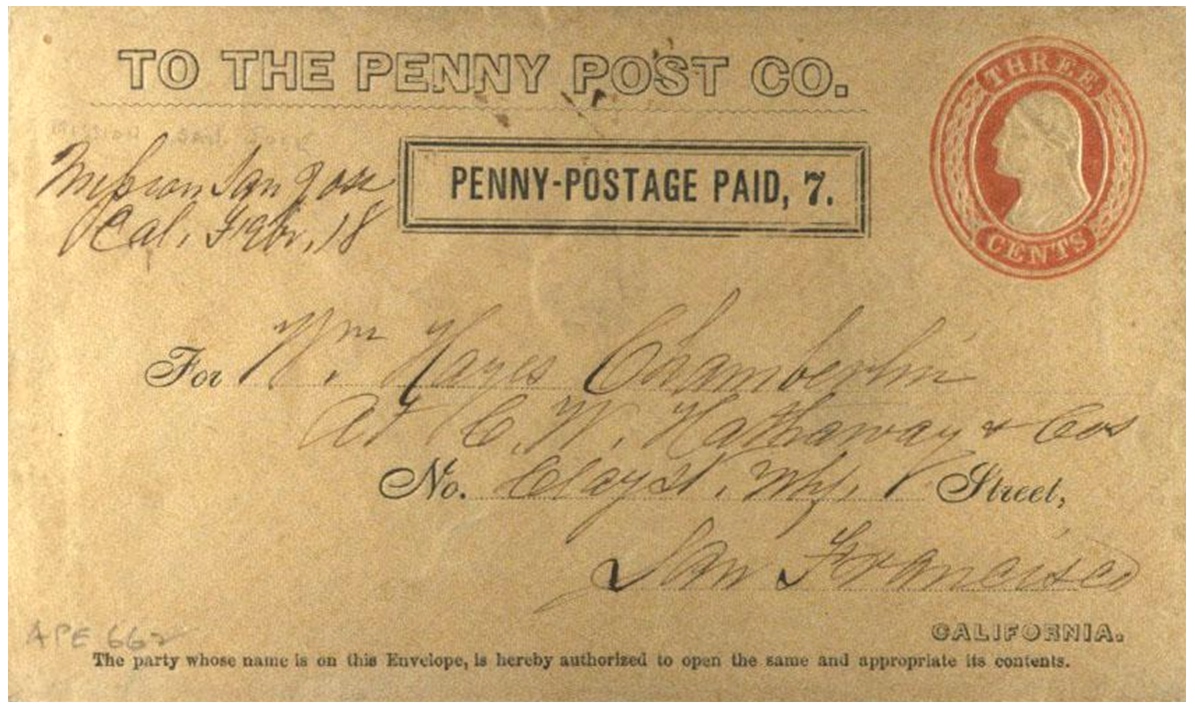 TO THE PENNY POST CO.
THREE
CENTS
Mission San Jose
PENNY-POSTAGE PAID, 7.
Mission San Jose
Cal. Febr. 18
For Wm Hayes Chamberlin
At C. W. Hathaway & Cos
No. Clay st. Whf. Street,
San Francisco
CALIFORNIA.
APE 662
The party whose name is on this Envelope, is hereby authorized to open the same and appropriate its contents.